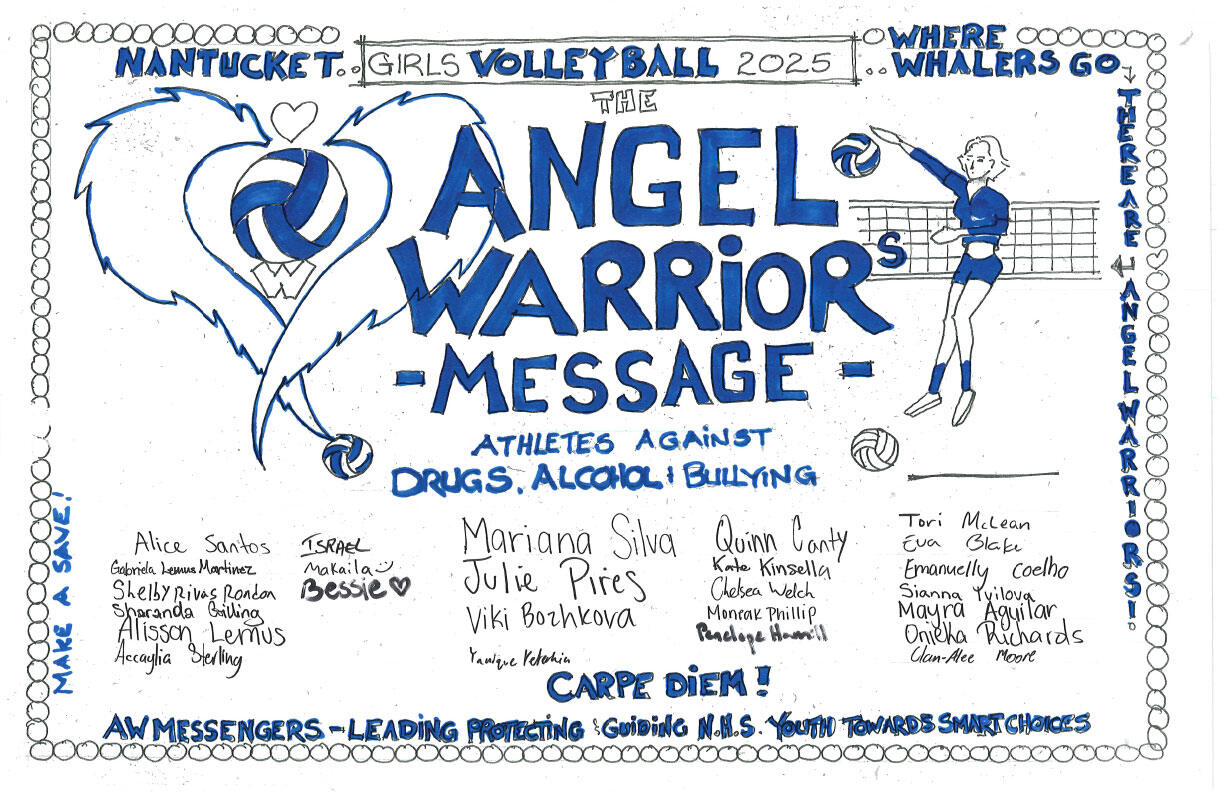 NANTUCKET.. GIRLS VOLLEYBALL 2025 ..WHERE WHALERS GO
THERE ARE ANGEL WARRIORS!
THE
ANGEL
WARRIORS
-MESSAGE-
ATHLETES AGAiNST
DRUGS, ALCOHOL & BULLYING
MAKE A SAVE!
Alice Santos
Gabriela Lemus Martinez
Shelby Rivas Rondon
Alisson Lemus
Accaylia Sterling
ISRAEL
Makaila
Bessie
Mariana Silva
Julie Pires
Viki Bozhkova
Quinn Canty
Kate Kinsella
Chelsea Welch
Monrak Phillip
Penelope
Tori McLean
Eva Blake
Emanuelly Coelho
Sianna
Mayra Aguilar
Onieka Richards
Moore
CARPE DiEM!
AW MESSENGERS - LEADING PROTECTING & GUIDING N.H.S. YOUTH TOWARDS SMART CHOICES